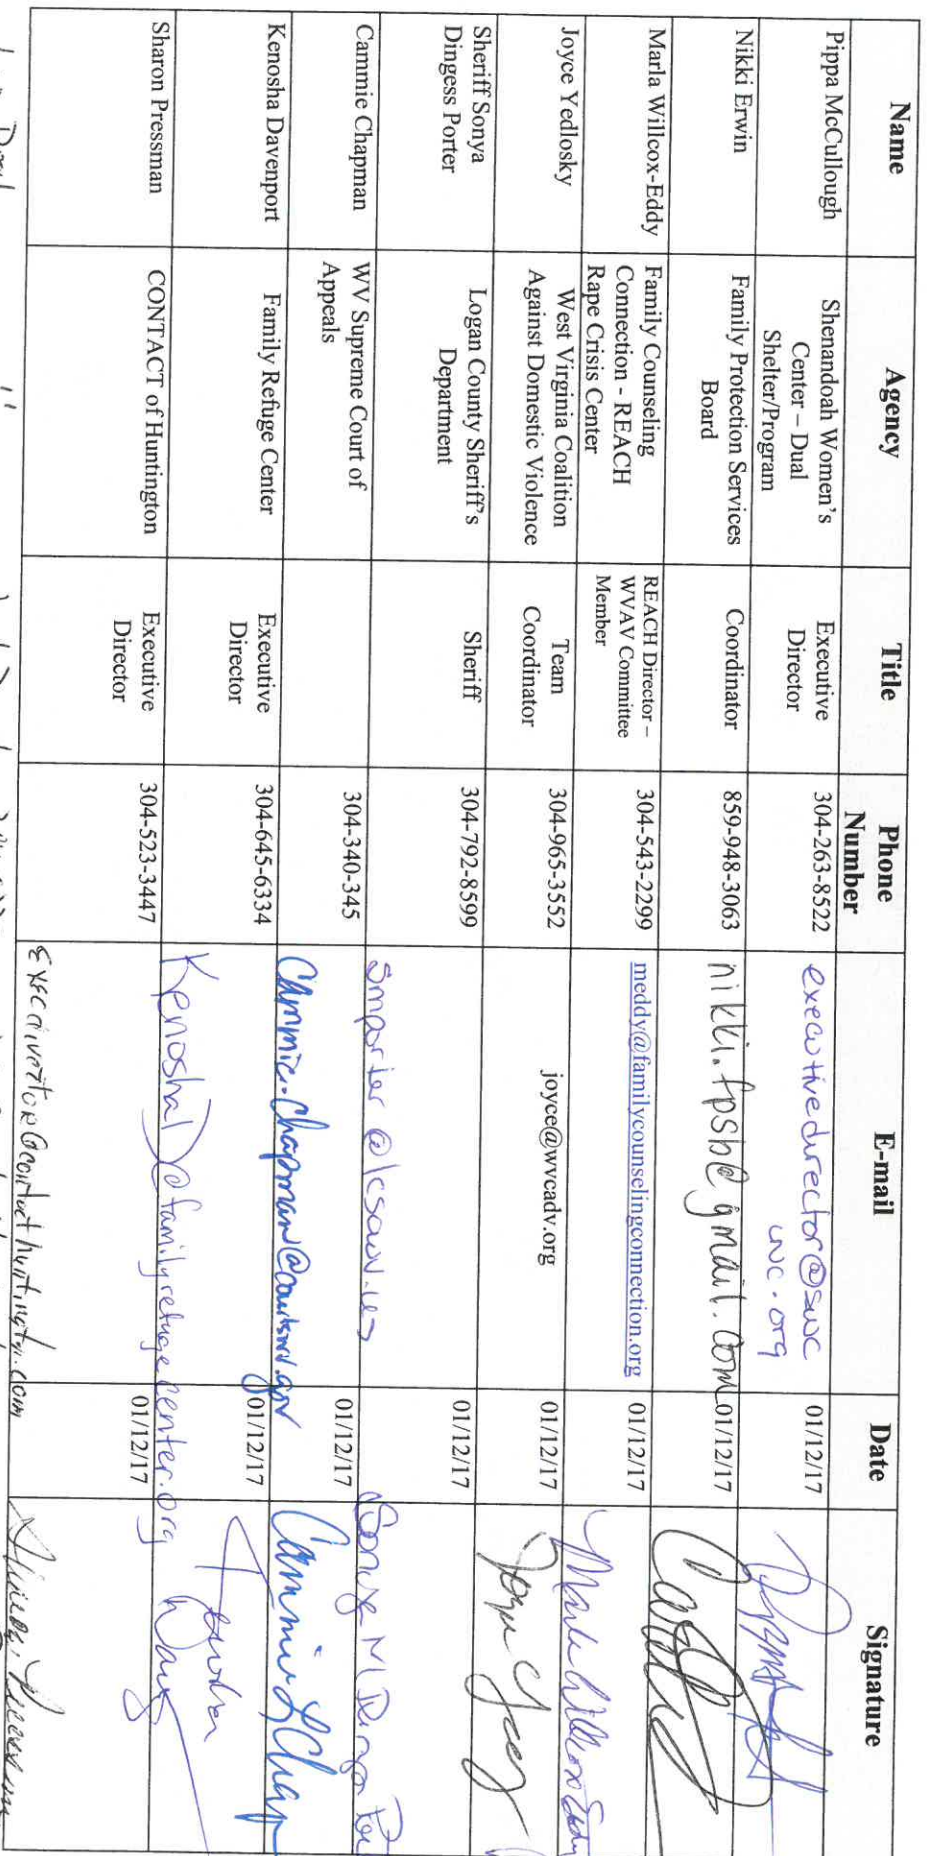 Name Agency Title Phone Number E-mail Date Signature
Pippa McCullough Shenandoah Women's Center – Dual Shelter/Program Executive Director 304-263-8522 executivedirector@swcwvc.org 01/12/17
Nikki Erwin Family Protection Services Board Coordinator 859-948-3063 nikki.fpsb@gmail.com 01/12/17
Marla Willcox-Eddy Family Counseling Connection - REACH Rape Crisis Center REACH Director – WVAV Committee Member 304-543-2299 meddy@familycounselingconnection.org 01/12/17 Marla Willcox Eddy
Joyce Yedlosky West Virginia Coalition Against Domestic Violence Team Coordinator 304-965-3552 joyce@wvcadv.org 01/12/17
Sheriff Sonya Dingess Porter Logan County Sheriff's Department Sheriff 304-792-8599 01/12/17
Cammie Chapman WV Supreme Court of Appeals 304-340-345 Cammie.Chapman@courtswv.gov 01/12/17 Cammie L Chap
Kenosha Davenport Family Refuge Center Executive Director 304-645-6334 KenoshaD@familyrefugecenter.org 01/12/17
Sharon Pressman CONTACT of Huntington Executive Director 304-523-3447 01/12/17